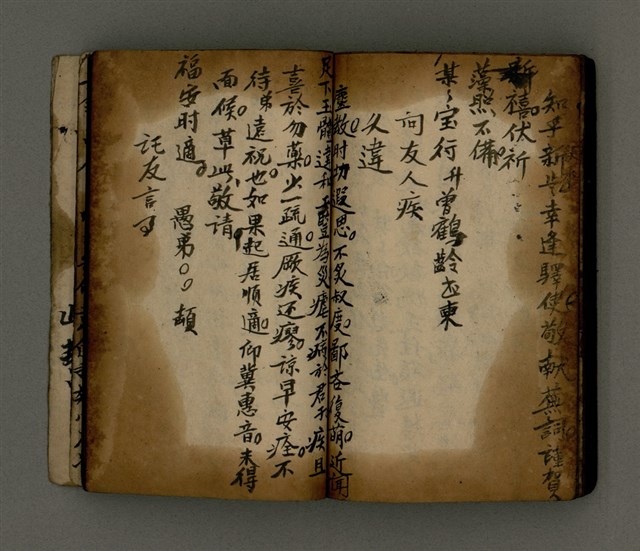 知乎新點幸逢驛使敬献蕪詞謹賀
新禧伏祈
藻照不備
某〻宝行升曾鶴齡書柬
问友人疾
久違
塵教时切遐思不筊叔度鄙吝復萌近闻
足下玉體違和豎為災瘧不病於君子疾且
喜於勿藥少一疏通厥疾还瘳諒早安痊不
待弟遠祝也如果起居順適仰冀惠音未得
面候草此敬請
福安时適 愚弟○○頓
託友言